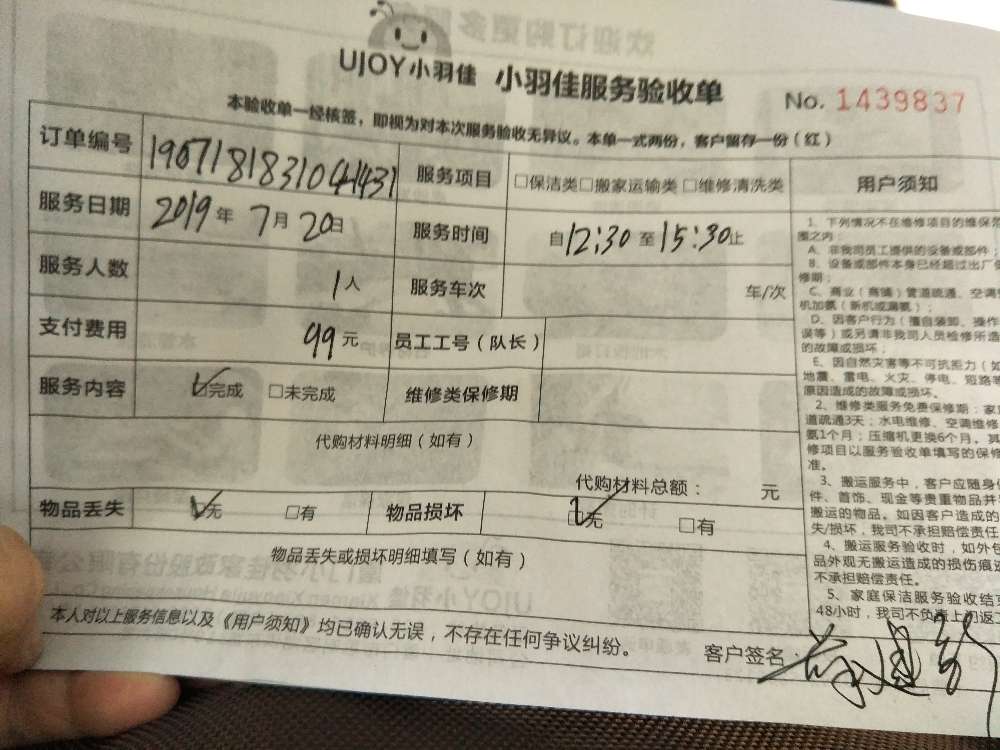 UJOY小羽佳 小羽佳服务验收单
No. 1439837
本验收单一经核签，即视为对本次服务验收无异议。本单一式两份，客户留存一份（红）
订单编号 190718183104431 服务项目 □保洁类□搬家运输类□维修清洗类
服务日期 2019年7月20日 服务时间 自12:30至15:30止
服务人数 1人 服务车次 车/次
支付费用 99元 员工工号（队长）
服务内容 ☑完成 □未完成 维修类保修期
代购材料明细（如有）
代购材料总额： 元
物品丢失 ☑无 □有 物品损坏 ☑无 □有
物品丢失或损坏明细填写（如有）
本人对以上服务信息以及《用户须知》均已确认无误，不存在任何争议纠纷。
客户签名：
用户须知
1、下列情况不在维修项目的维保范
围之内：
A、非我司员工提供的设备或部件；
B、设备或部件本身已经超过出厂保
修期；
C、商业（商铺）管道疏通、空调
机加氨（新机或漏氨）；
D、因客户行为（擅自装卸、操作
误等）或另请非我司人员检修所造
的故障或损坏；
E、因自然灾害等不可抗拒力（如
地震、雷电、火灾、停电、短路等
原因造成的故障或损坏。
2、维修类服务免费保修期：家
道疏通3天；水电维修、空调维修
氨1个月；压缩机更换6个月。其
修项目以服务验收单填写的保修
准。
3、搬运服务中，客户应随身
件、首饰、现金等贵重物品并
搬运的物品。如因客户造成的
失/损坏，我司不承担赔偿责任
4、搬运服务验收时，如外包
品外观无搬运造成的损伤痕迹
不承担赔偿责任。
5、家庭保洁服务验收结
48小时，我司不负责上门返工